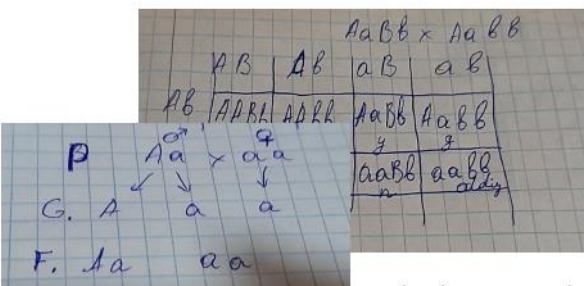 AaBb x Aabb
AB Ab aB ab
Ab AABb AAbb AaBb Aabb
y g
aaBb aabb
P Aa ♂ x aa ♀
G. A a a
F. Aa aa